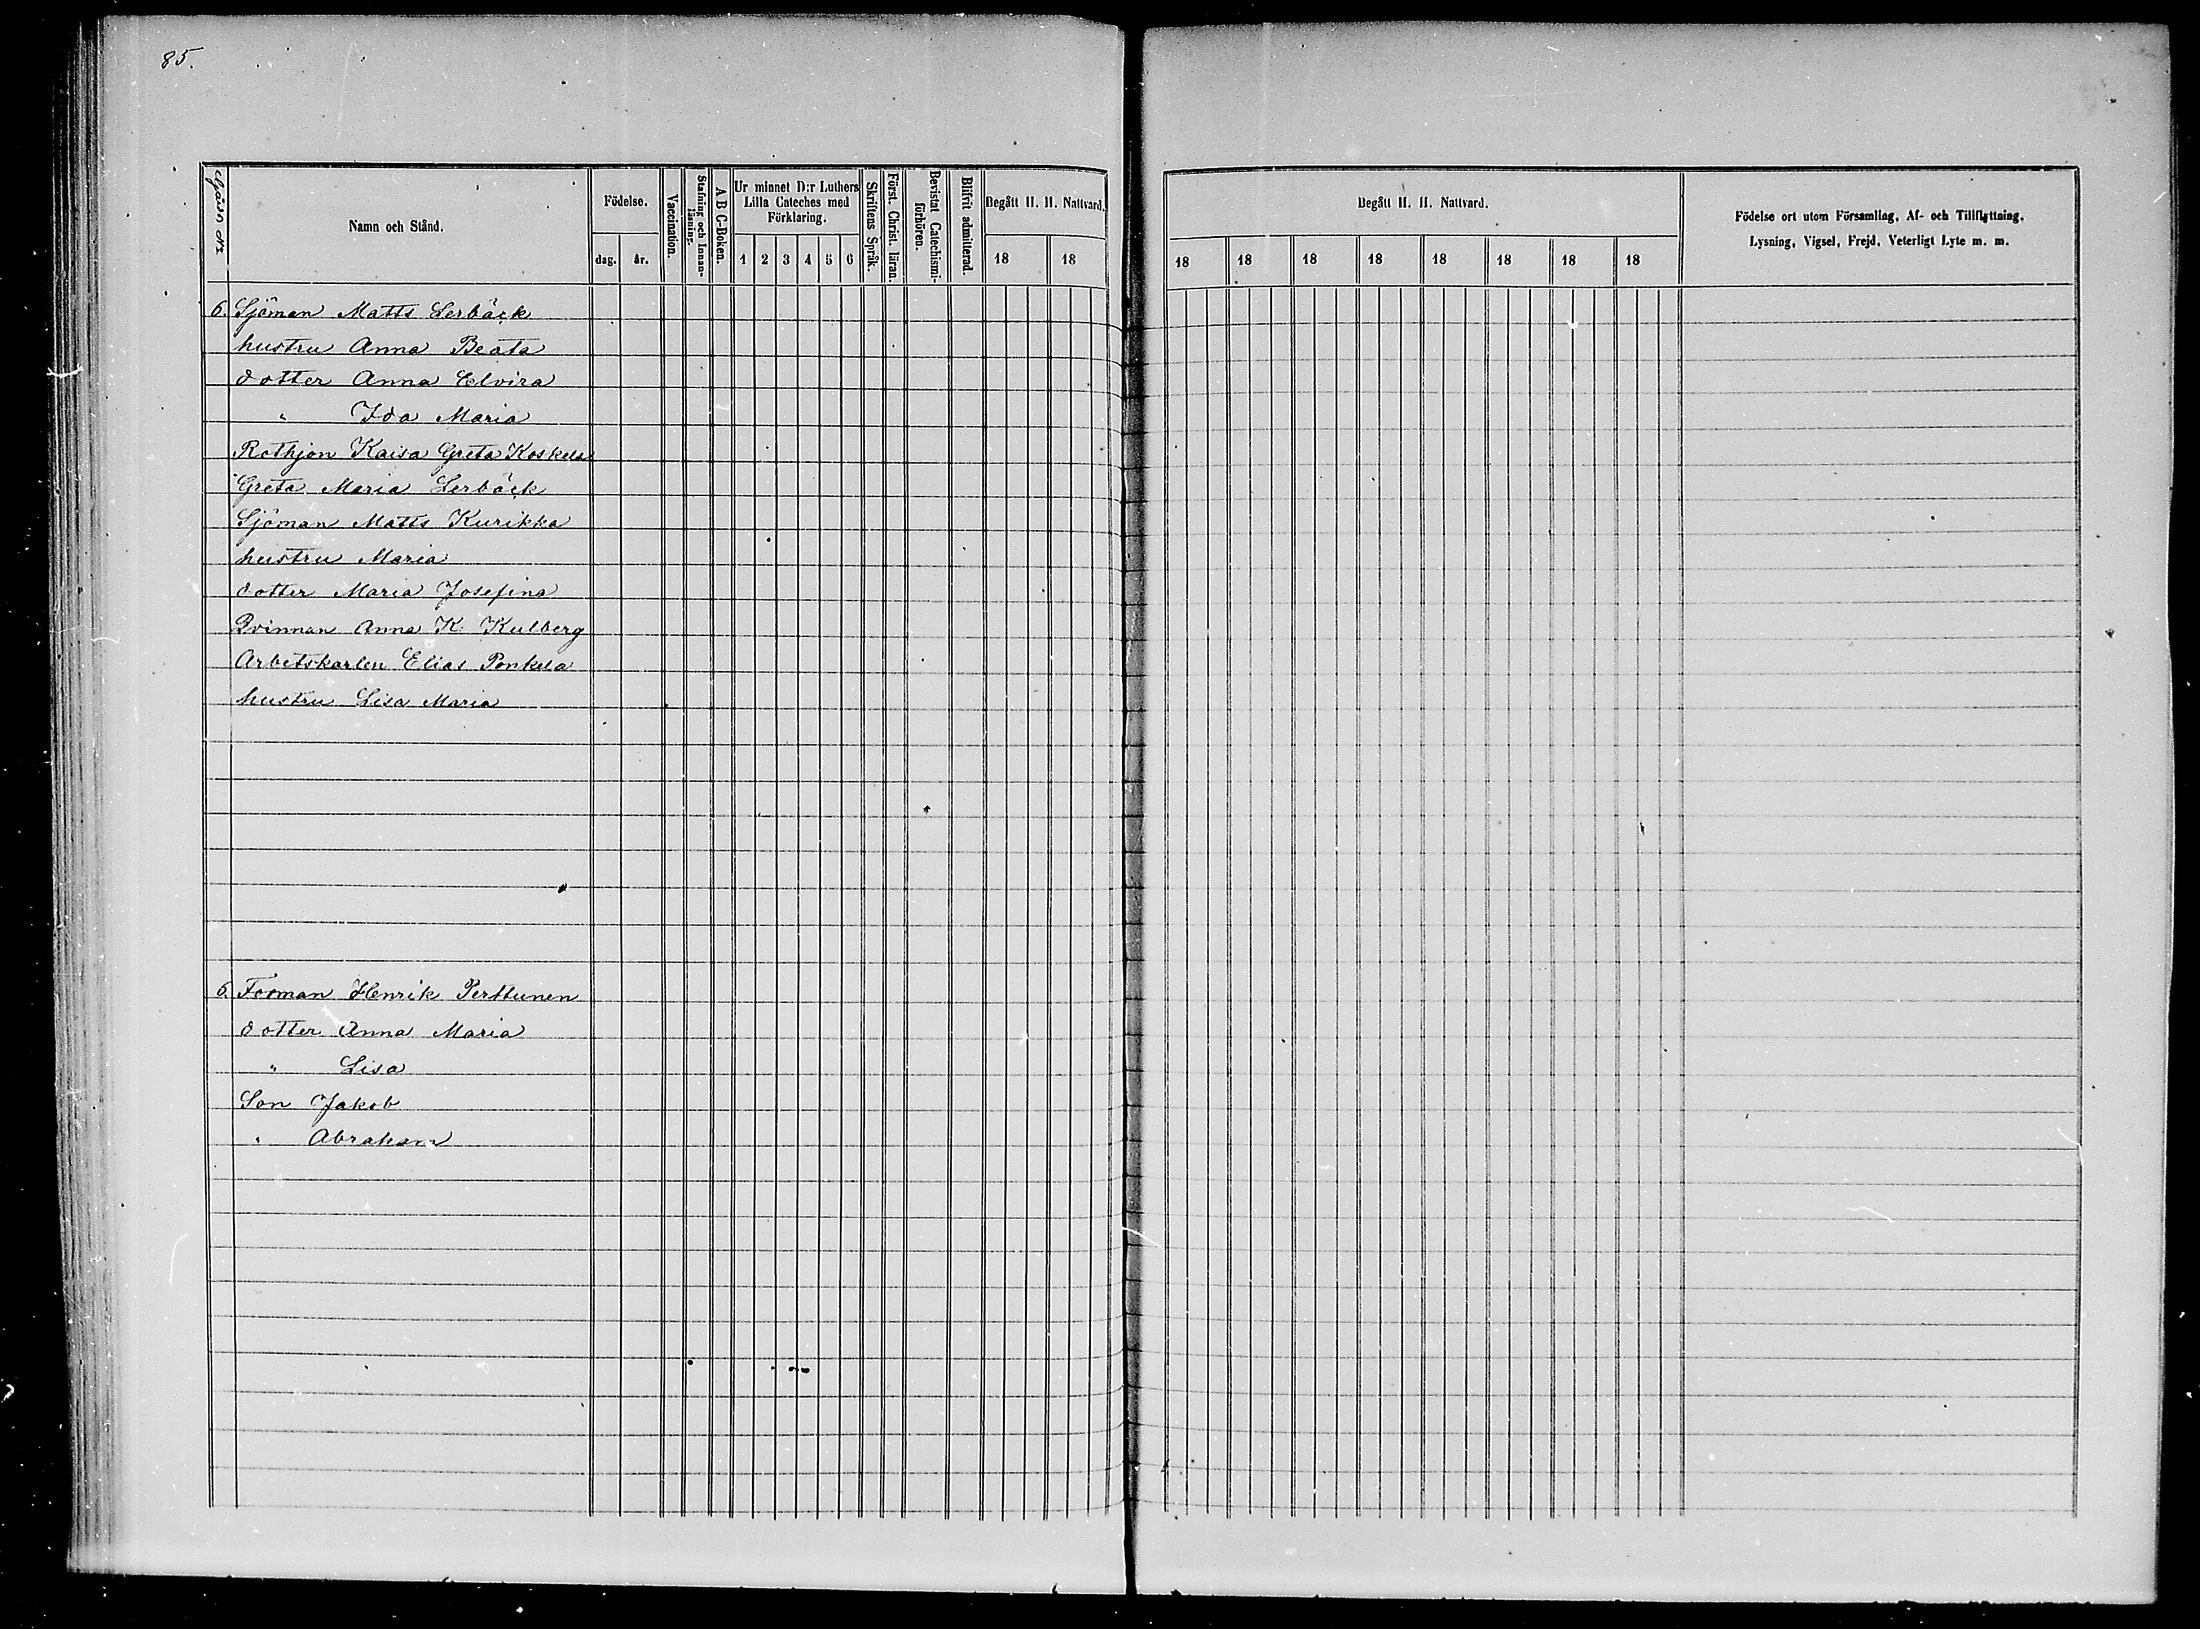 85.
Gård N:r
Namn och Stånd.
Födelse.
dag. år.
Vaccination.
Stafning och Innanläsning.
A B C-Boken.
Ur minnet D:r Luthers
Lilla Cateches med
Förklaring.
1 2 3 4 5 6
Skriftens Språk.
Först. Christ. läran.
Bevistat Catechismi-
förhören.
Blifvit admitterad.
Begått H. H. Nattvard.
18 18
Begått H. H. Nattvard.
18 18 18 18 18 18 18 18
Födelse ort utom Församling, Af- och Tillflyttning,
Lysning, Vigsel, Frejd, Veterligt Lyte m. m.
6. Sjöman Matts Lerbäck
hustru Anna Beata
dotter Anna Elvira
" Ida Maria
Rothjon Kaisa Greta Koskela
Greta Maria Lerbäck
Sjöman Matts Kurikka
hustru Maria
dotter Maria Josefina
Qvinnan Anna K. Kulberg
Arbetskarlen Elias Ponkela
hustru Lisa Maria
6. Forman Henrik Perttunen
dotter Anna Maria
" Lisa
Son Jakob
" Abraham